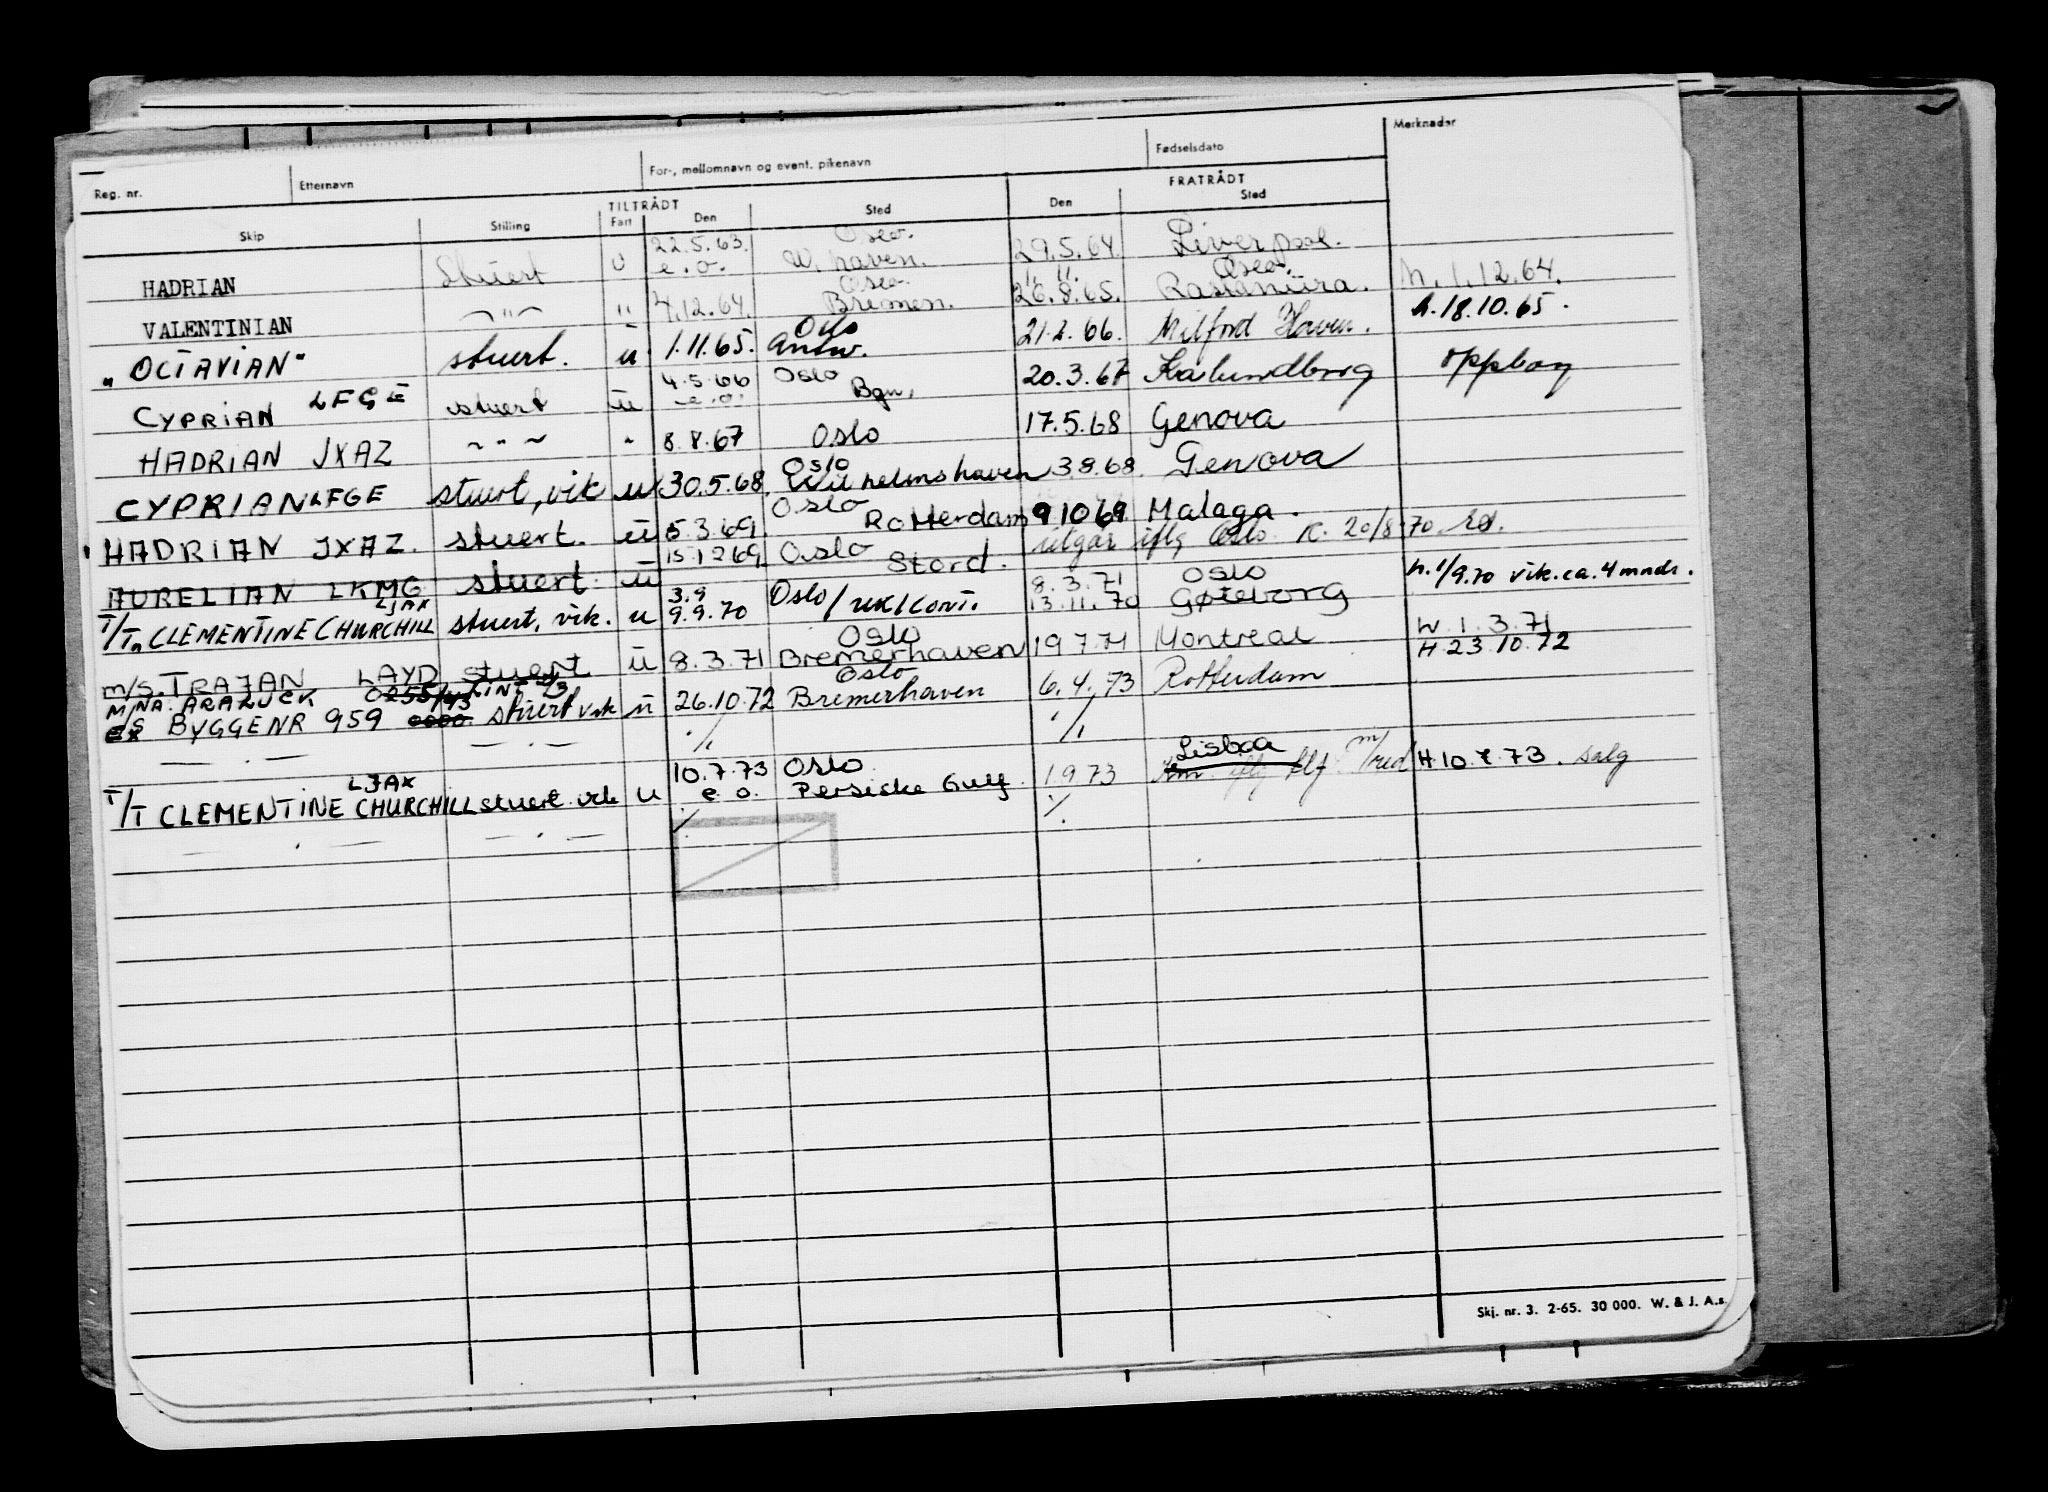 Reg. nr. Etternavn For-, mellomnavn og event. pikenavn Fødselsdato Merknader
TILTRÅDT FRATRÅDT
Skip Stilling Fart Den Sted Den Sted
22.5.63. Oslo.
HADRIAN Stuert U e.o. W. haven. 29.5.64. Liverpool.
Oslo. " " Oslo.
VALENTINIAN — " — " 4.12.64. Bremen. 26.8.65. Rastanura. h. 1.12.64.
Oslo
"OCTAVIAN" stuert. u 1.11.65. Antw. 21.2.66. Milford Haven. h.18.10.65.
4.5.66 Oslo
CYPRIAN LFGE stuert u e.o. Bgn. 20.3.67 Kalundborg oppboy
HADRIAN JXAZ ~ " ~ " 8.8.67 Oslo 17.5.68 Genova
Oslo
CYPRIAN LFGE stuert, vik u 30.5.68. Wilhelmshaven 3.8.68. Genova
Oslo
HADRIAN JXAZ. stuert. u 5.3.69. Rotterdam 9.10.69 Malaga.
AURELIAN LKMG stuert. u 15.12.69. Oslo Stord. utgår iflg Oslo. K. 20/8-70
LJAX 3.9 8.3.71 Oslo
T/T" CLEMENTINE CHURCHILL stuert, vik. u 9.9.70 Oslo/rek/cont. 13.11.70 Gøteborg h. 1/9.70 vik. ca. 4 mndr.
Oslo
m/s. TRAJAN LAYD stuert u 8.3.71 Bremerhaven 19.7.71 Montreal W. 1.3.71
M/NA. ARALUCK 0255/43 Oslo H 23.10.72
ex BYGGENR 959 stuert vik u 26.10.72 Bremerhaven 6.4.73 Rotterdam
— . — — . — ./. ./.
LJAX 10.7.73 Oslo Lisboa
T/T CLEMENTINE CHURCHILL stuert vik u e.o. Persiske Gulf. 1.9.73 iflg tlf. m/red H 10.7.73. salg
— . — — . — ./. ./.
Skj. nr. 3. 2-65. 30 000. W. & J. A.s.